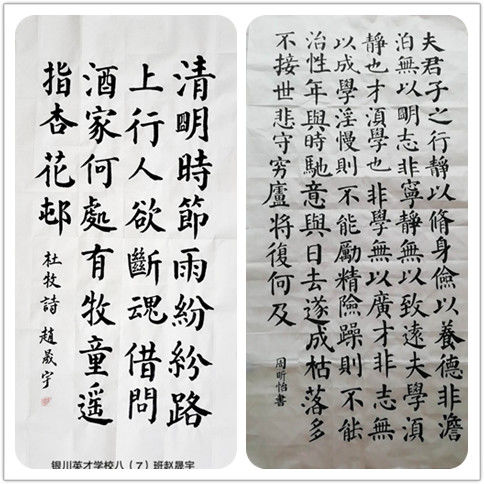 清明時節雨紛紛路
上行人欲斷魂借問
酒家何處有牧童遥
指杏花邨
杜牧詩 趙晟宇
银川英才学校八（7）班赵晟宇
夫君子之行靜以脩身儉以養德非澹
泊無以明志非寧靜無以致遠夫學湏
靜也才湏學也非學無以廣才非志無
以成學淫慢則不能勵精險躁則不能
治性年與時馳意與日去遂成枯落多
不接世悲守窮廬將復何及
周昕怡書